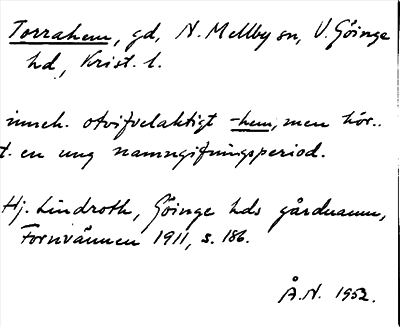 Torrahem, gd, N. Mellby sn, V. Göinge
hd, Krist. l.
inneh. otvifvelaktigt -hem, men hör..
t. en ung namngifningsperiod.
Hj. Lindroth, Göinge hds gårdnamn,
Fornvännen 1911, s. 186.
Å.N. 1952.